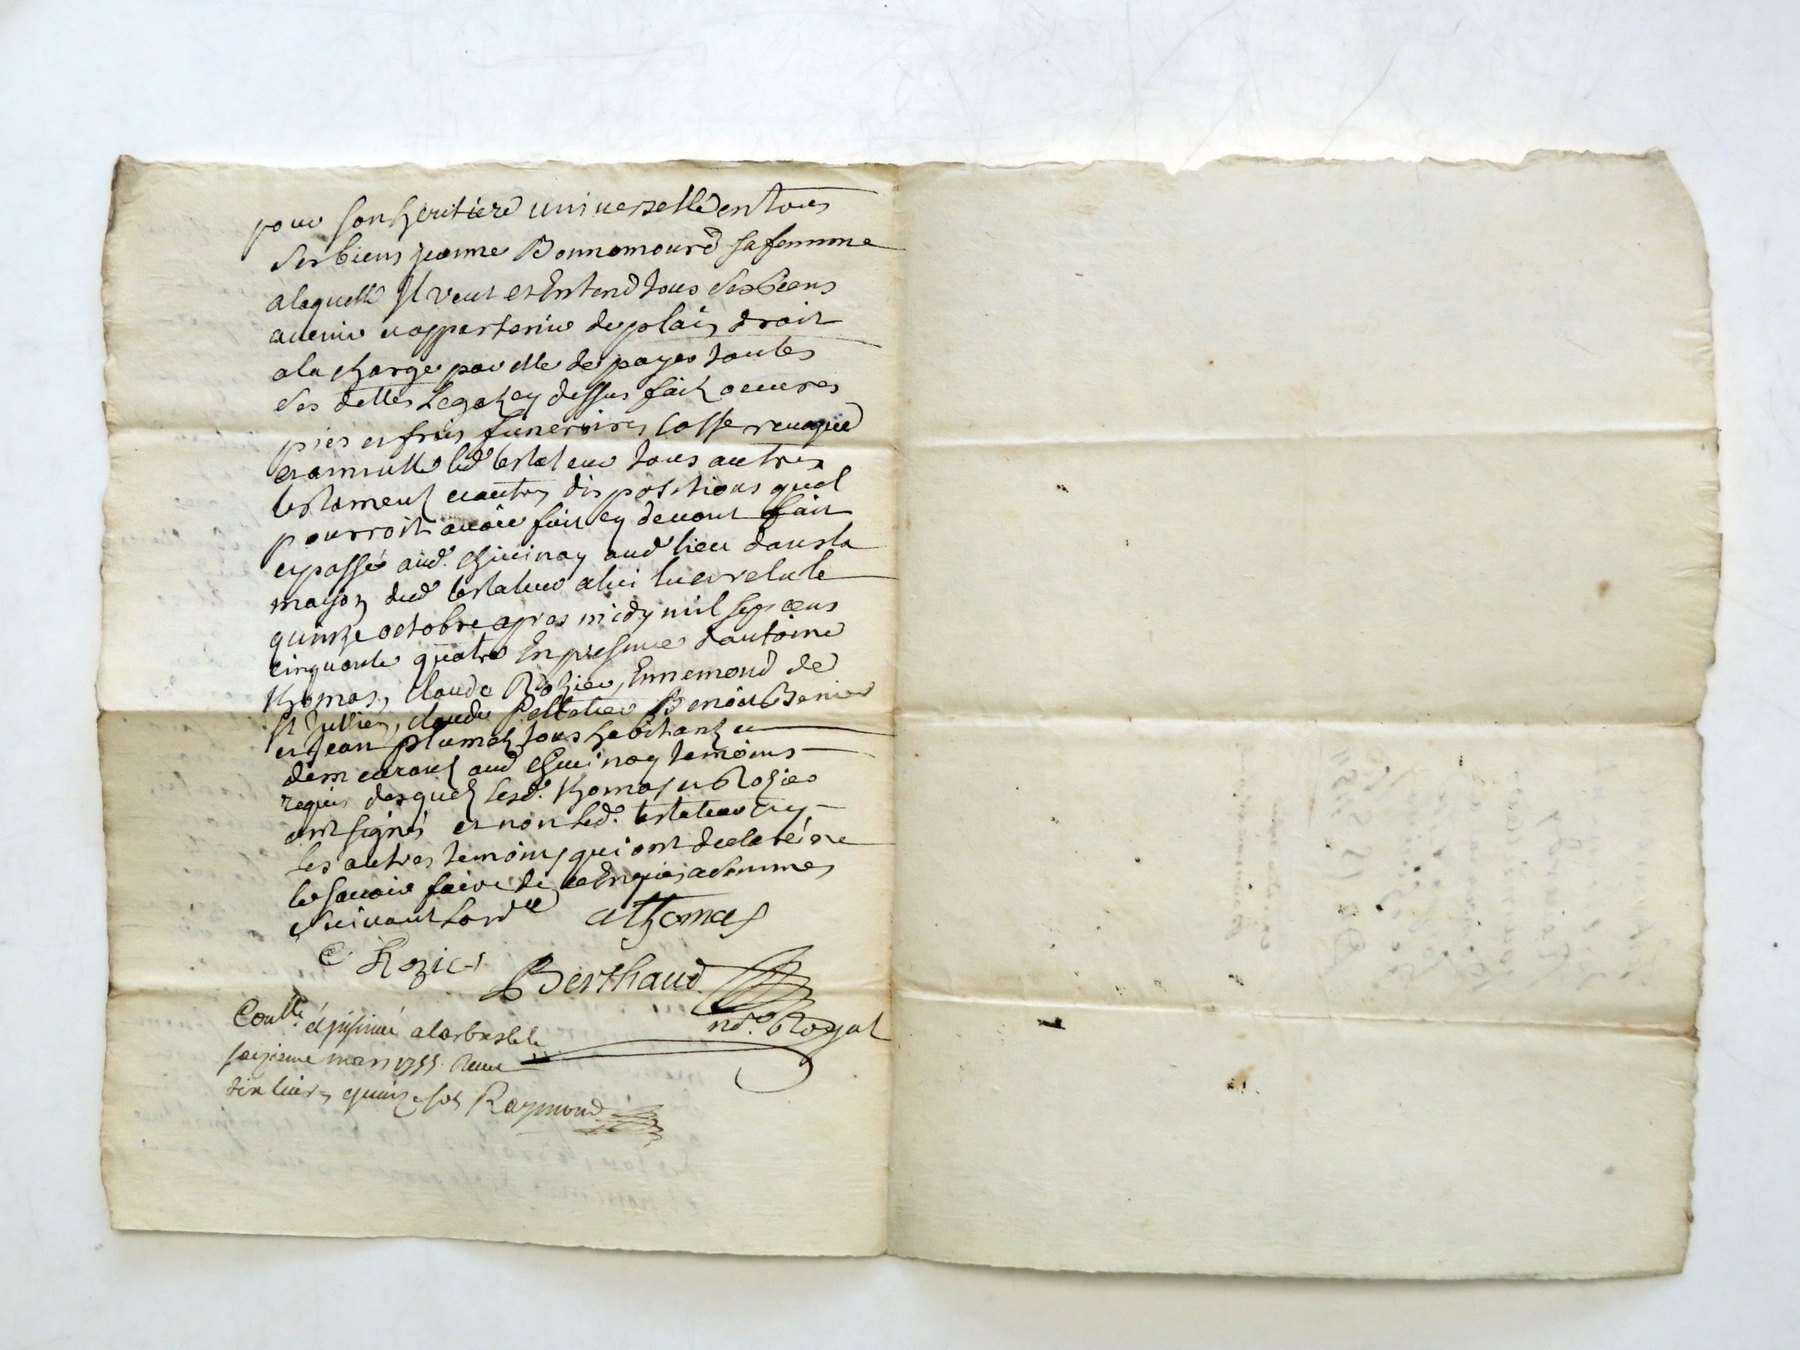 pour son heritiere universelle en tous
ses biens jeanne Bonnamourd sa femme
a laquelle Il veut et Entend tous ses biens
avenir et appartenir de plain droit
a la charge par elle de payer toutes
ses dettes Legat cy dessus fait oeuvres
pies et frais funeraires Casse revoque
et annulle led. testateur tous autres
testament et autres dispositions quel
pourroit avoir fait cy devant fait
et passé aud. chivinay aud lieu dans la
maison dud testateur a lui lu et relu le
quinze octobre apres midy mil sept cens
cinquante quatre En presence dantoine
thomas, claude Rozier, Ennemond de
St Jullien, claude Pelletier Benoit
et Jean plumet tous habitant et
demeurant aud chivinay temoins
requis desquel lesd. thomas et Rozier
ont signés et non led. testateur ny
les autres temoins qui ont declaré ne
le savoir faire de ce Enquis et sommes
suivant lord.ce athomas
C Rozier
Berthaud
nd.e Royal
Con.lle et insinué a larbresle le
seizieme mars 1755. Receu
dix livres quinze sols Raymond